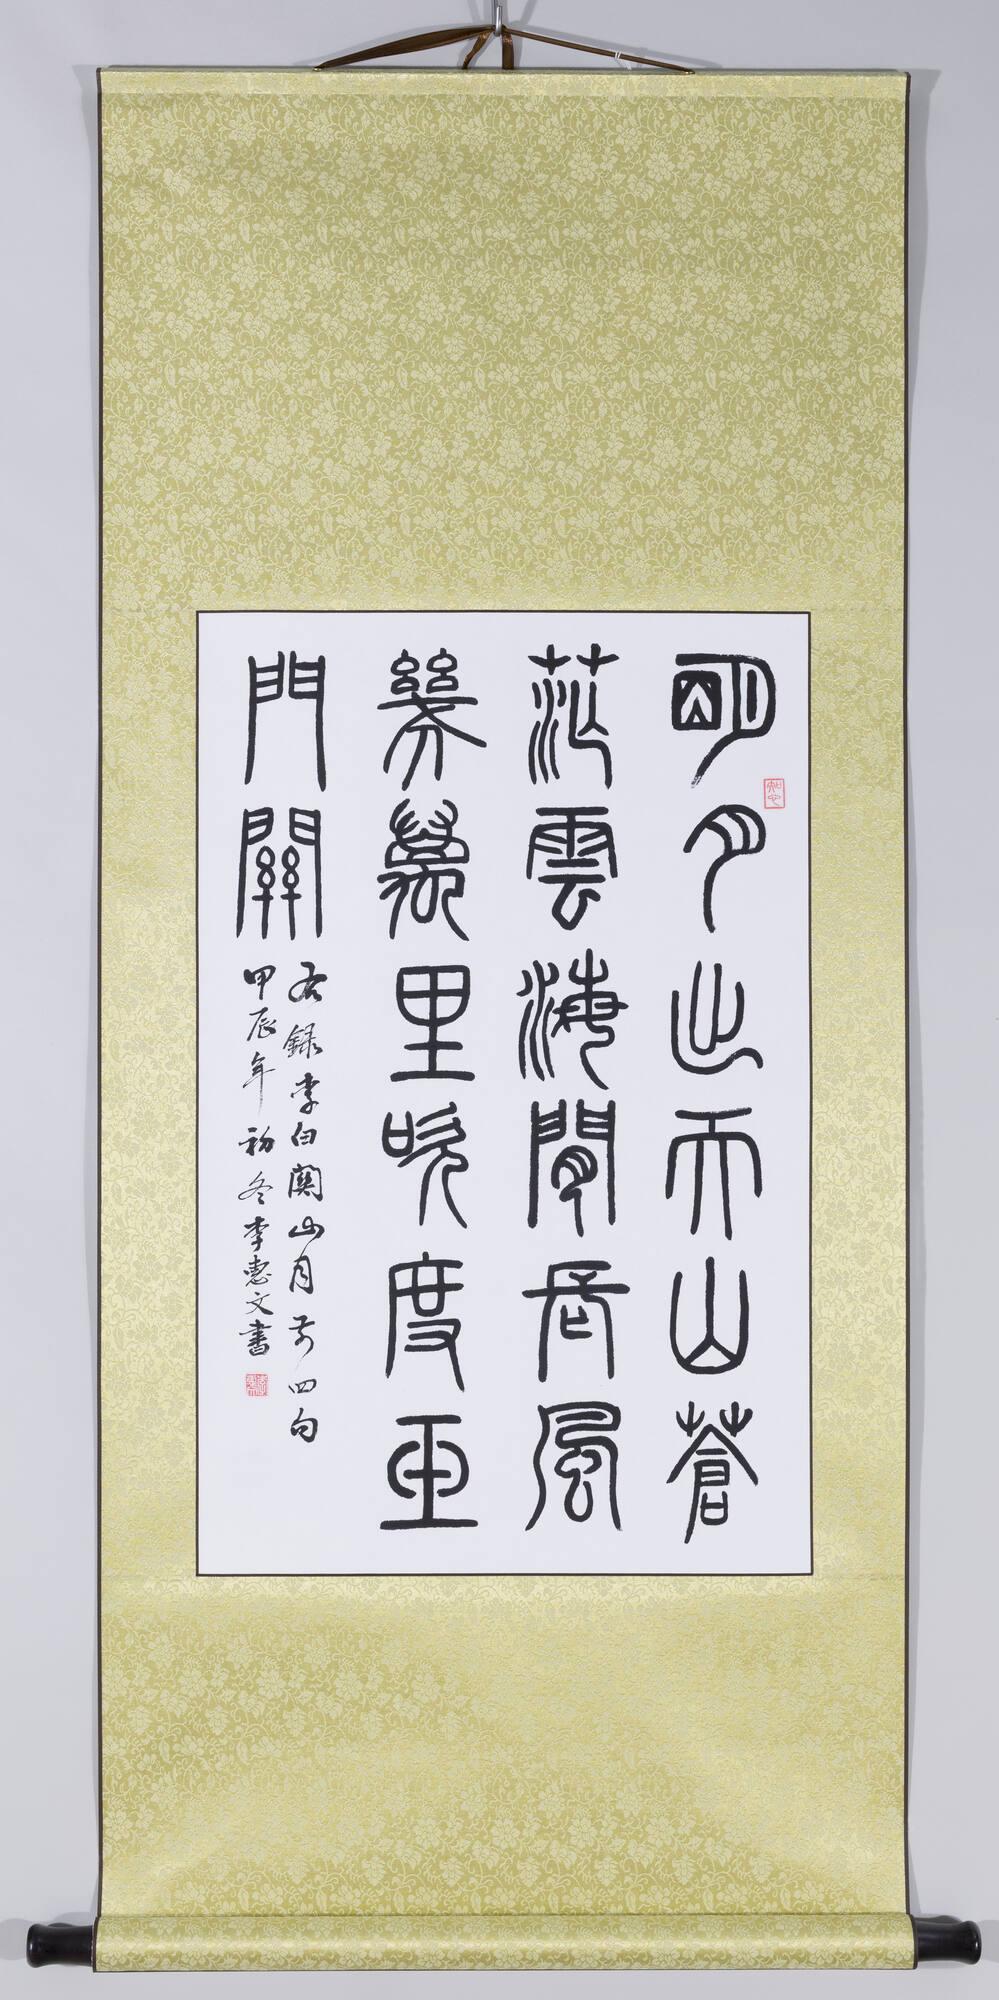 明月出天山蒼
茫雲海間長風
幾萬里吹度玉
門關
右録李白關山月前四句
甲辰年初冬李惠文書
知心